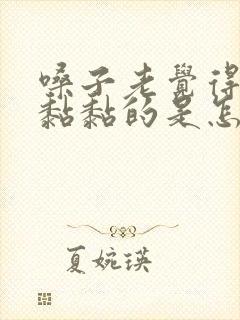 嗓子老覺得
黏黏的是怎
夏婉瑛